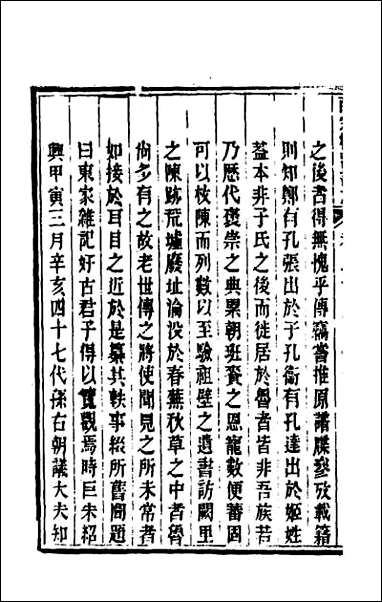 之後者得無愧乎傳竊嘗推原譜牒參攷載籍
則知鄭有孔張出於子孔衛有孔達出於姬姓
蓋本非子氏之後而徙居於魯者皆非吾族若
乃歷代褒崇之典累朝班賚之恩寵數便蕃固
可以枚陳而列數以至驗祖壁之遺書訪闕里
之陳跡荒墟廢址淪没於春蕪秋草之中者魯
尚多有之故老世傳之將使聞見之所未嘗者
如接於耳目之近於是纂其軼事綴所舊聞題
曰東家雜記好古君子得以覽觀焉時巨宋紹
興甲寅三月辛亥四十七代孫右朝議大夫知